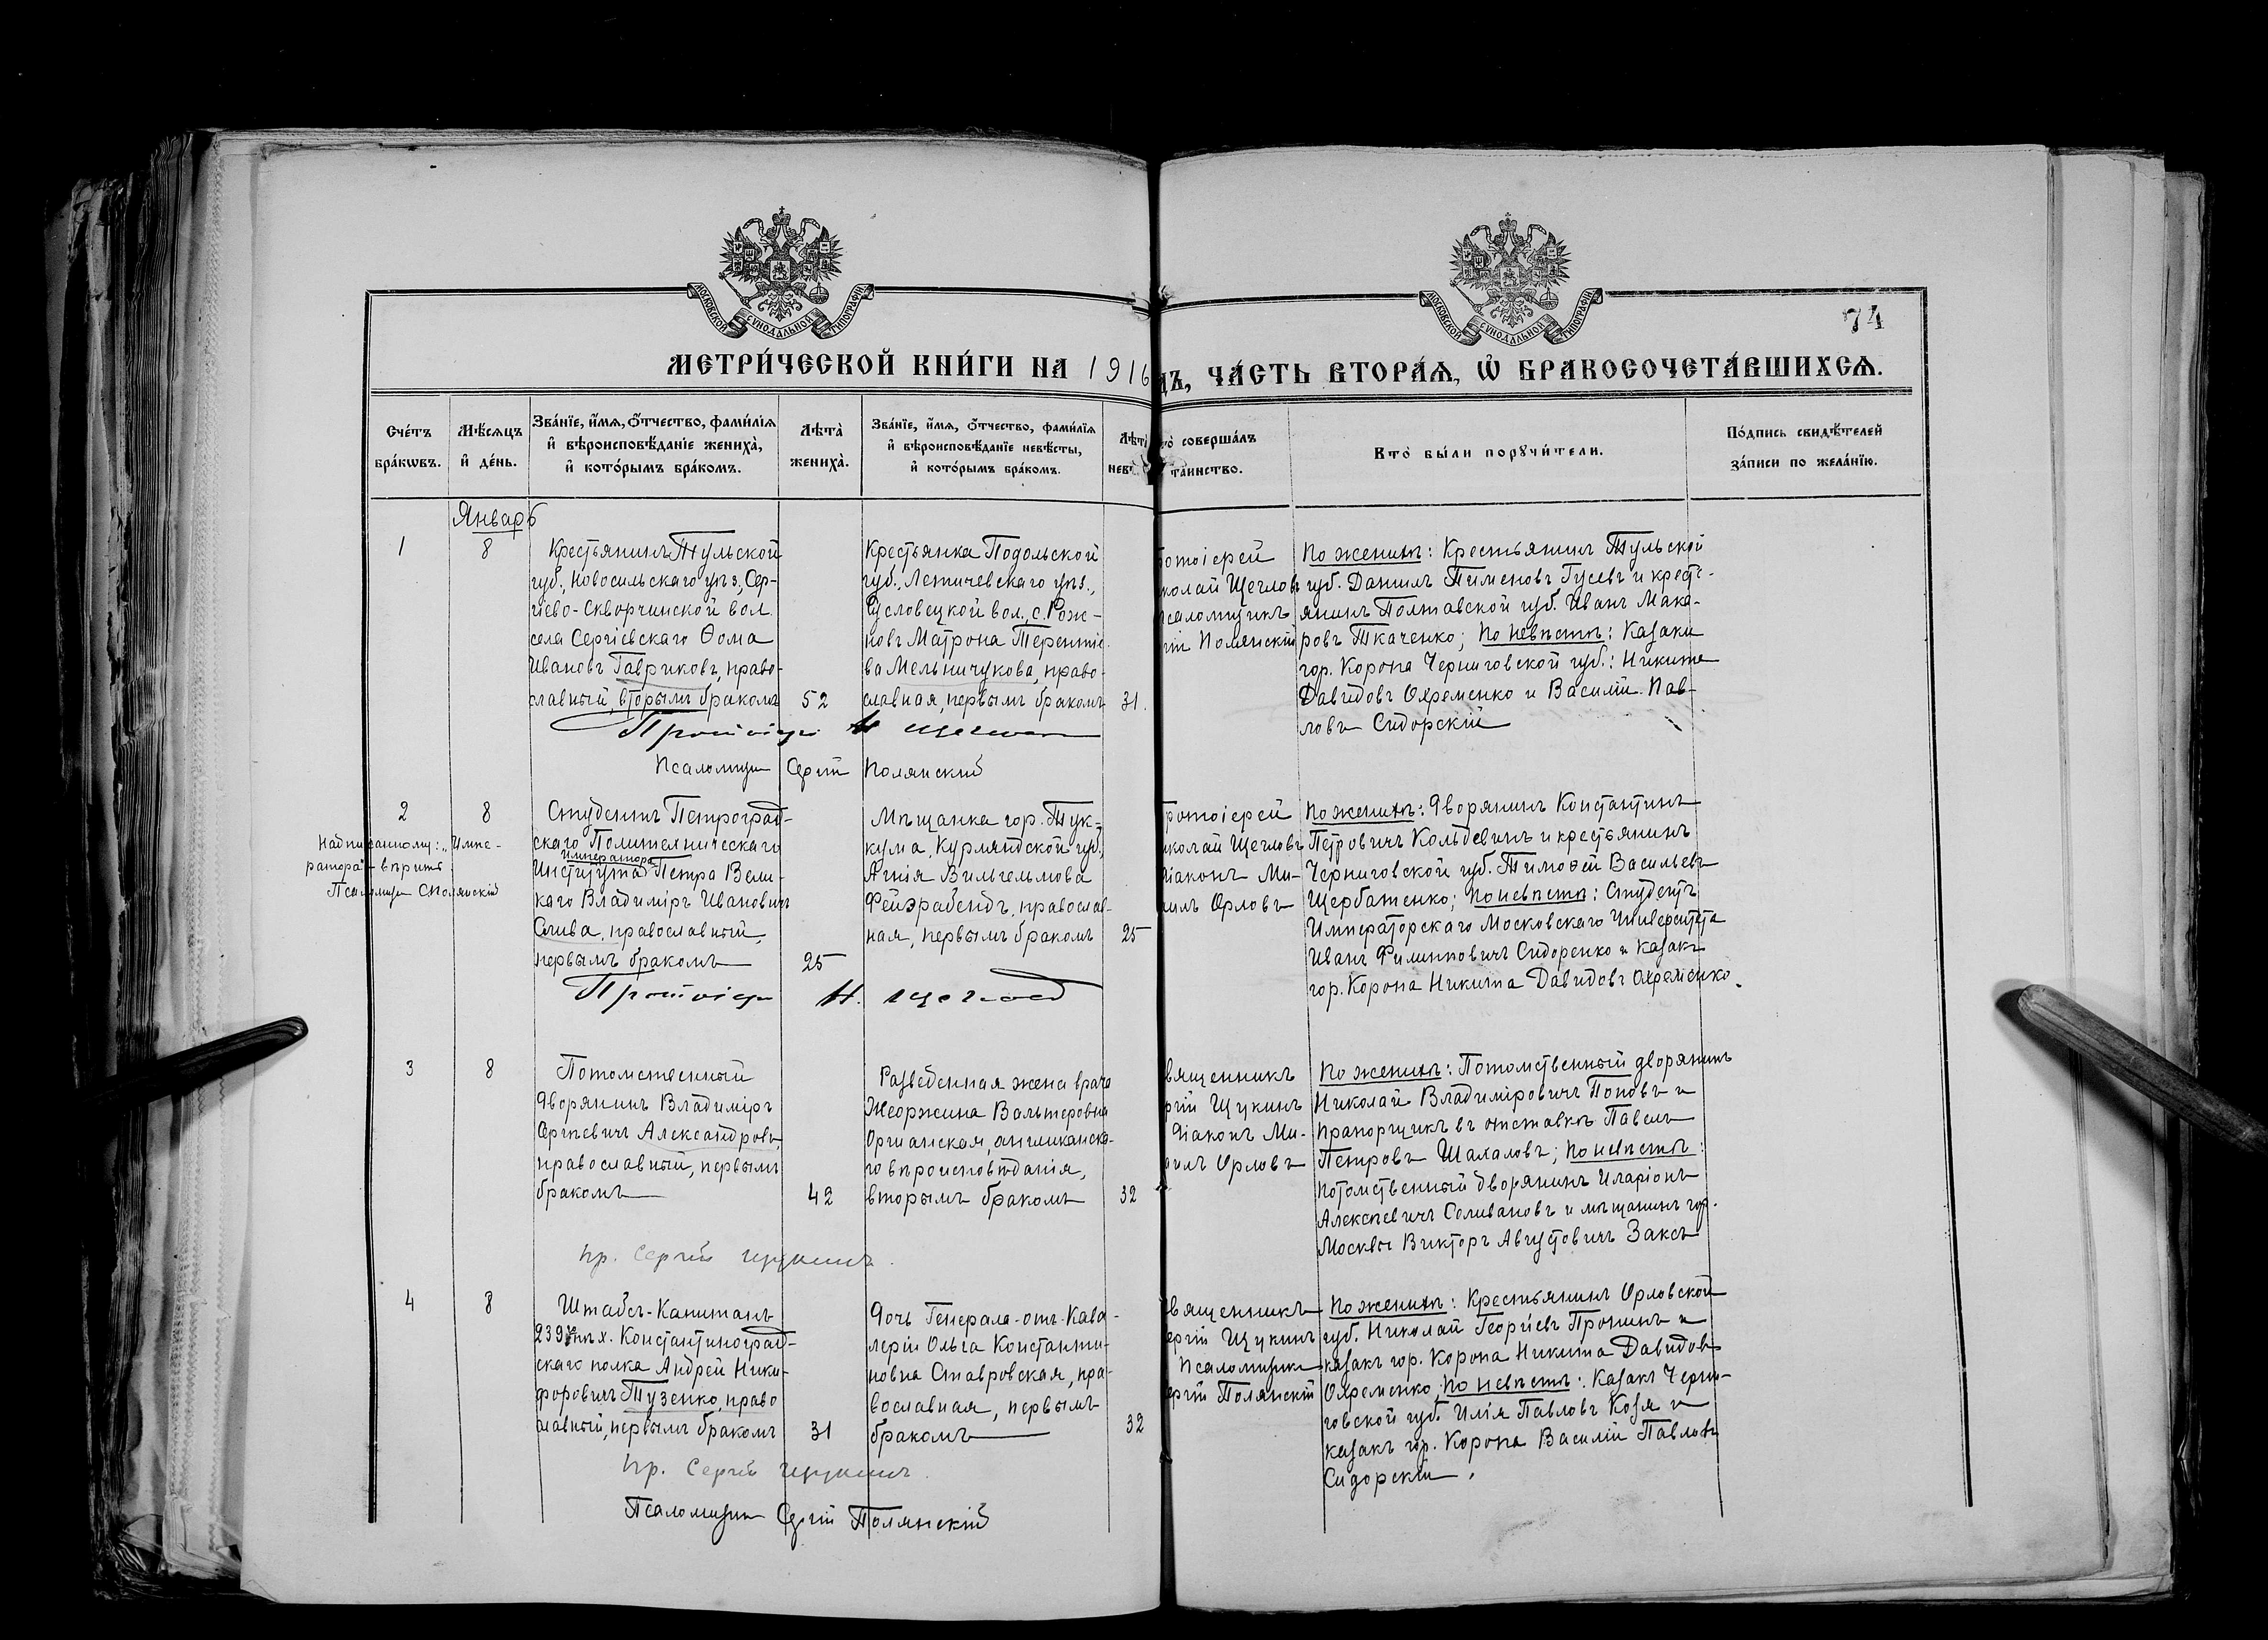 МОСКОВСКОЙ СѴНОДАЛЬНОЙ ТИПОГРАФІИ
МОСКОВСКОЙ СѴНОДАЛЬНОЙ ТИПОГРАФІИ
74
МЕТРИ́ЧЕСКОЙ КНИ́ГИ НА 1916
ДЪ, ЧА́СТЬ ВТОРА́Ѧ, Ѽ БРАКОСОЧЕТА́ВШИХСѦ.
Сче́тъ
бра́кѡвъ.
Мѣ́сѧцъ
и҆ де́нь.
Зва́нїе, и҆́мѧ, ѻ҆́тчество, фами́лїѧ
и҆ вѣроисповѣ́данїе жениха̀,
и҆ кото́рымъ бра́комъ.
Лѣта̀
жениха̀.
Зва́нїе, и҆́мѧ, ѻ҆́тчество, фами́лїѧ
и҆ вѣроисповѣ́данїе невѣ́сты,
и҆ кото́рымъ бра́комъ.
Лѣта
невѣ
то̀ соверша́лъ
та́инство.
Кто̀ бы́ли порꙋчи́тели.
По́дпись свидѣ́телей
за́писи по жела́нїю.
Январь
1
8
Крестьянинъ Тульской
губ., Новосильскаго уѣз., Сер-
гіево-Скворчинской вол.
села Сергіевскаго Ѳома
Ивановъ Гавриковъ, право-
славный, вторымъ бракомъ
52
Крестьянка Подольской
губ., Летичевскаго уѣз.,
Сусловецкой вол., с. Рож-
новъ Матрона Терентіе-
ва Мельничукова, право-
славная, первымъ бракомъ
31.
ротоіерей
колай Щегловъ
саломщикъ
гій Полянскій
По женихѣ: Крестьянинъ Тульской
губ. Даніилъ Пименовъ Гусевъ и кресть-
янинъ Полтавской губ. Иванъ Мака-
ровъ Ткаченко; По невѣстѣ: Казаки
гор. Корона Черниговской губ.: Никита
Давидовъ Охременко и Василій Пав-
ловъ Сидорскій
Протоіерей Н Щегловъ
Псаломщик Сергій Полянскій
2
8
Надписанному: „Импе-
ратора" вѣрить
Псаломщик С Полянскій
Студентъ Петроград-
скаго Политехническаго
Императора
Института Петра Вели-
каго Владиміръ Ивановичъ
Слива, православный,
первымъ бракомъ
25
Мѣщанка гор. Тук-
кума, Курляндской губ.,
Агнія Вильгельмова
Фейэрабендъ, православ-
ная, первымъ бракомъ
25
ротоіерей
иколай Щегловъ
Діаконъ Ми-
илъ Орловъ
По женихѣ: Дворянинъ Константинъ
Петровичъ Кольдевинъ и крестьянинъ
Черниговской губ. Тимоѳей Васильевъ
Щербатенко; по невѣстѣ: Студентъ
Императорскаго Московскаго Университета
Иванъ Филипповичъ Сидоренко и казакъ
гор. Корона Никита Давидовъ Охременко.
Протоіерей Н. Щегловъ
3
8
Потомственный
Дворянинъ Владиміръ
Сергѣевичъ Александровъ,
православный, первымъ
бракомъ
42
Разведенная жена врача
Жеоржина Вальтеровна
Органская, англиканска-
го вѣроисповѣданія,
вторымъ бракомъ
32
вященникъ
ргій Щукинъ
Діаконъ Ми-
аилъ Орловъ
По женихѣ: Потомственный дворянинъ
Николай Владиміровичъ Поповъ и
прапорщикъ въ отставкѣ Павелъ
Петровъ Шахаловъ; по невѣстѣ:
потомственный дворянинъ Иларіонъ
Алексѣевичъ Селивановъ и мѣщанинъ гор.
Москвы Викторъ Августовичъ Заксъ
пр. Сергій Щукинъ.
4
8
Штабсъ-Капитанъ
239 пѣх. Константиноград-
скаго полка Андрей Ники-
форовичъ Тузенко, право
славный, первымъ бракомъ
31
Дочь Генерала-отъ-Кава-
леріи Ольга Константи-
новна Ставровская, пра-
вославная, первымъ
бракомъ
32
вященникъ
ергій Щукинъ
Псаломщикъ
ергій Полянскій
По женихѣ: Крестьянинъ Орловской
губ. Николай Георгіевъ Пронинъ и
казакъ гор. Корона Никита Давидовъ
Охременко; по невѣстѣ: Казакъ Черни-
говской губ. Илія Павловъ Козя и
казакъ гор. Корона Василій Павловъ
Сидорскій.
пр. Сергій Щукинъ.
Псаломщик Сергій Полянскій